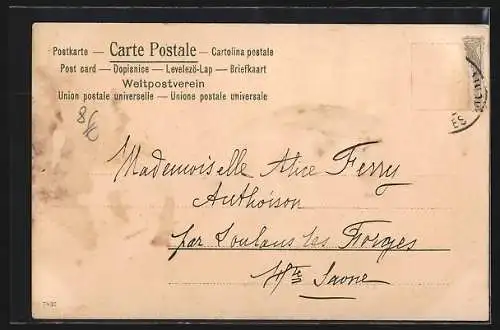 Postkarte — Carte Postale — Cartolina postale
Post card — Dopisnice — Levelező-Lap — Briefkaart
Weltpostverein
Union postale universelle — Unione postale universale
Mademoiselle Alice Ferry
Authoison
par Loulans les Forges
Hte Saone